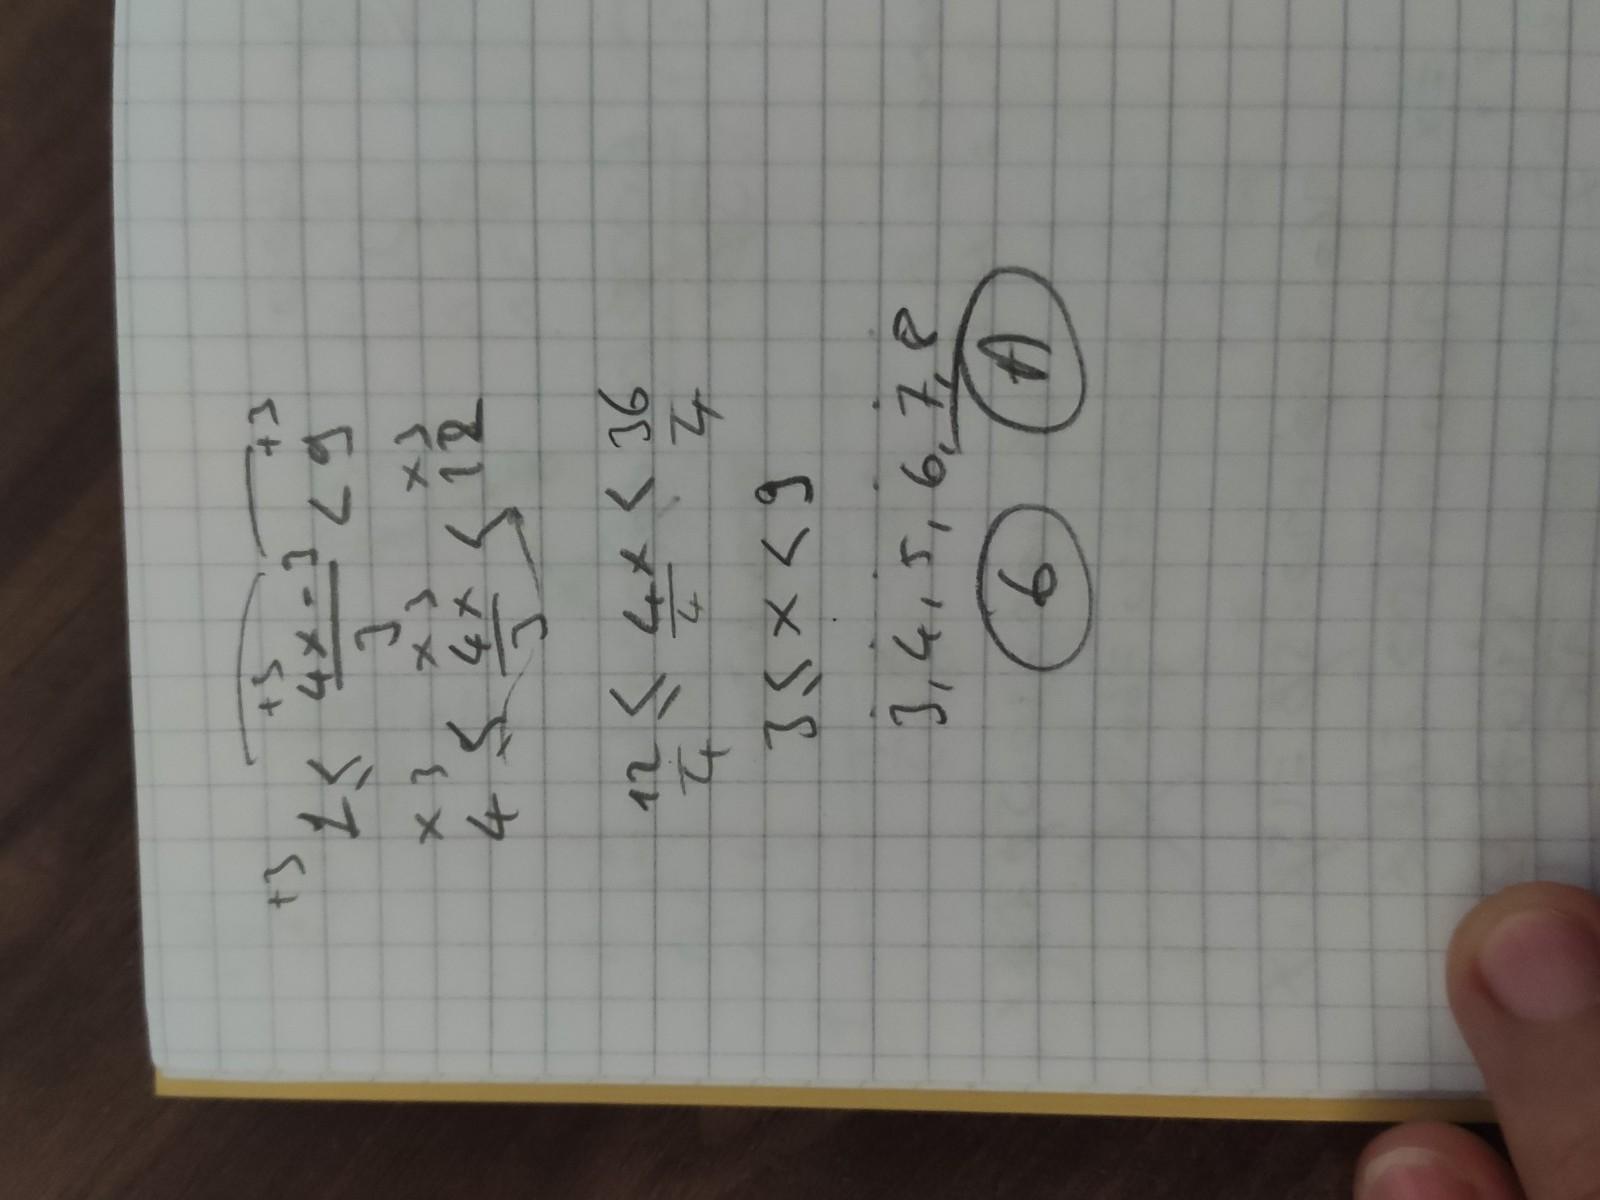 +3 +3 +3
1 ≤ (4x-3)/3 < 9
x3 x3 x3
4 ≤ 4x/3 < 12
12/4 ≤ 4x/4 < 36/4
3 ≤ x < 9
3, 4, 5, 6, 7, 8
6 A